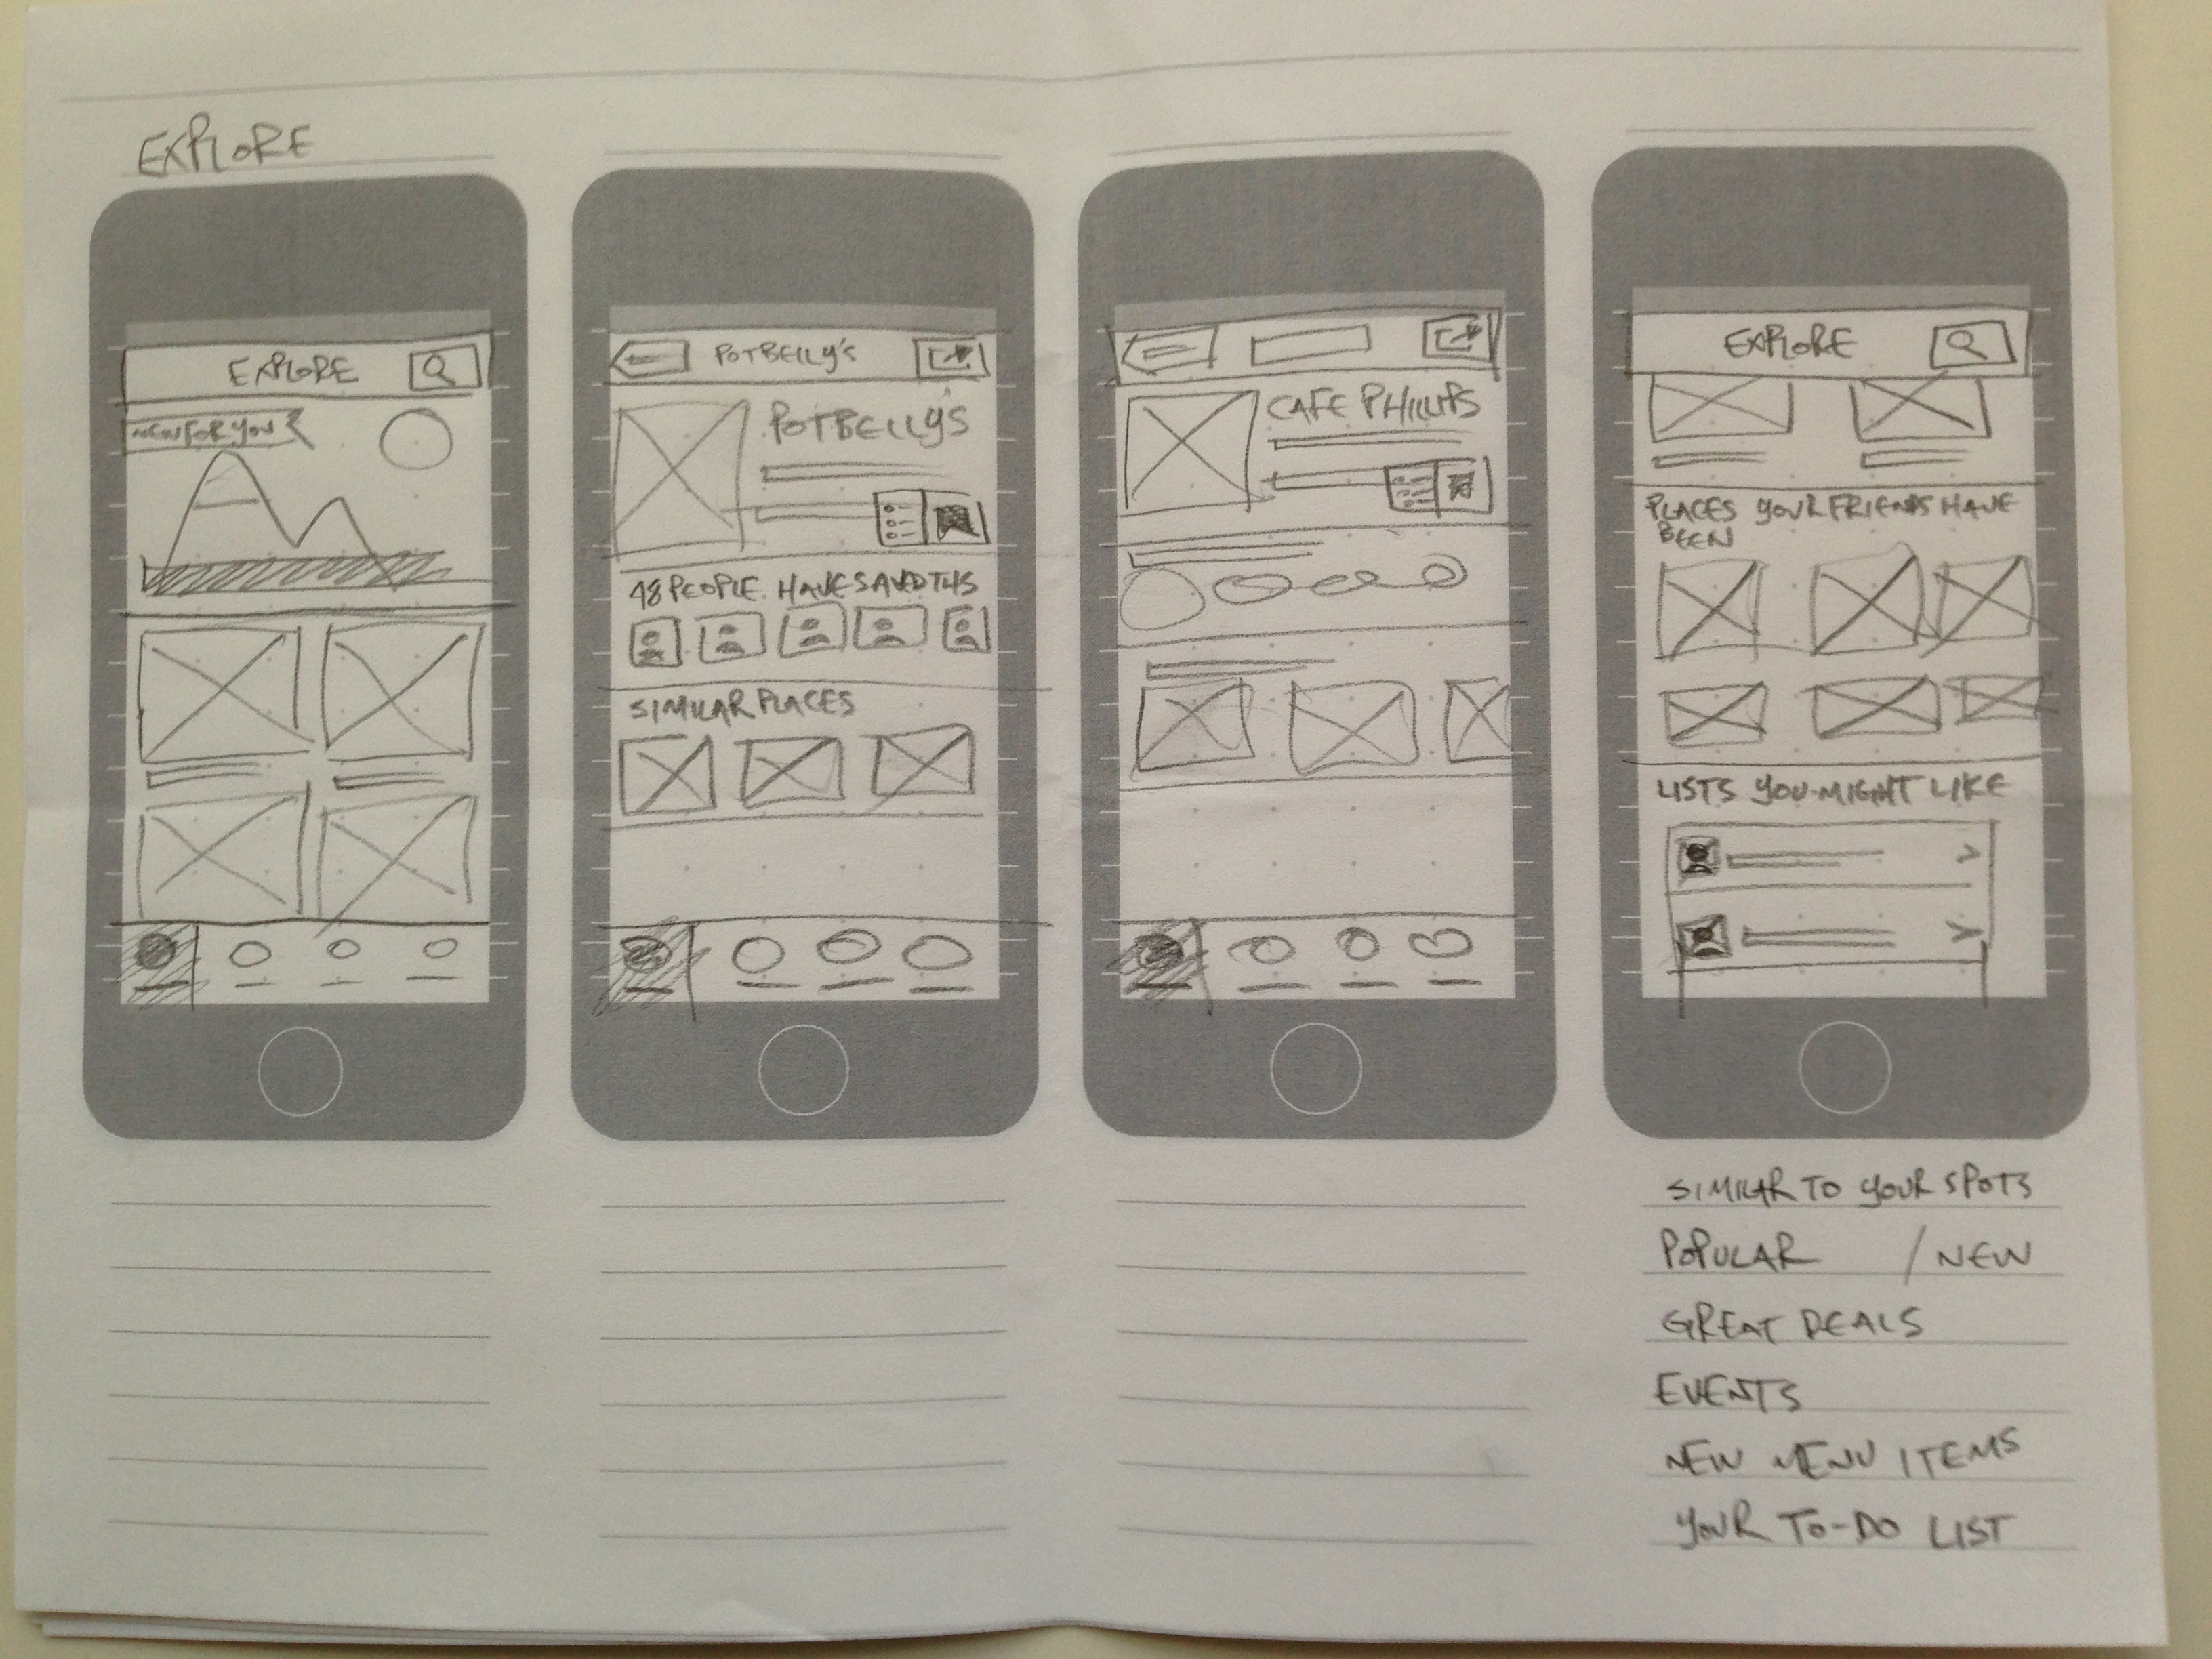 EXPLORE
EXPLORE
NEW FOR YOU
POTBELLY'S
POTBELLYS
18 PEOPLE HAVE SAVED THIS
SIMILAR PLACES
CAFE PHILLIPS
EXPLORE
PLACES YOUR FRIENDS HAVE
BEEN
LISTS YOU MIGHT LIKE
SIMILAR TO YOUR SPOTS
POPULAR / NEW
GREAT DEALS
EVENTS
NEW MENU ITEMS
YOUR TO-DO LIST